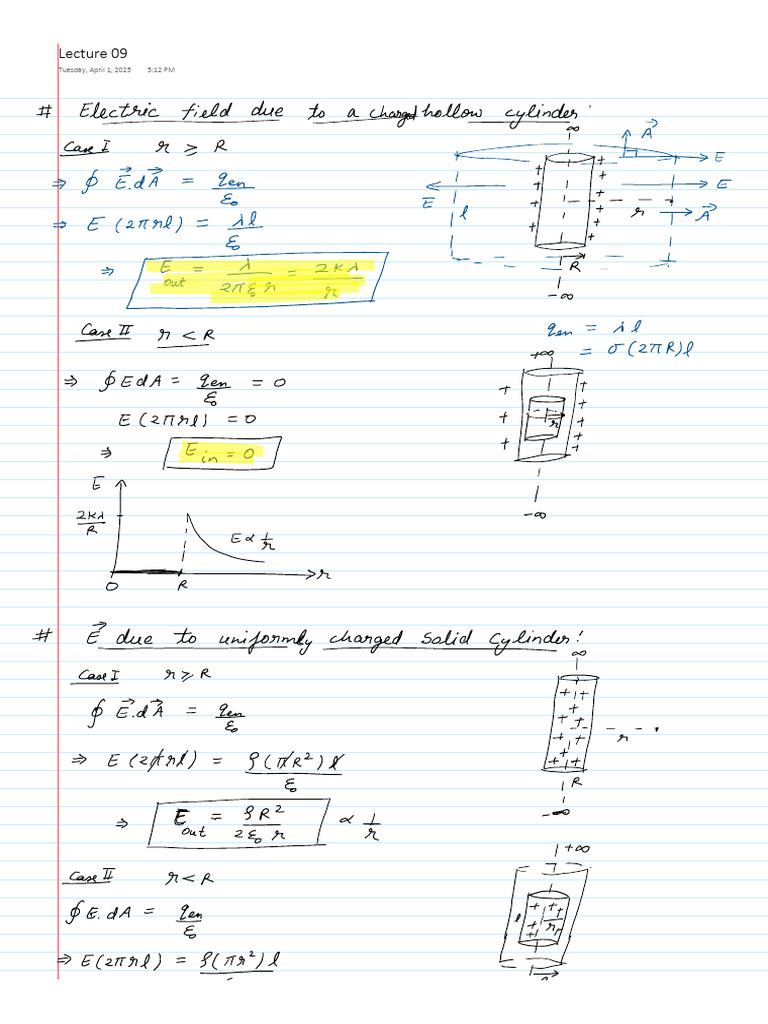 Lecture 09
Tuesday, April 1, 2025 5:12 PM
# Electric field due to a charged hollow cylinder:
Case I r ≥ R
⇒ ∮ E⃗.dA⃗ = qen/ε₀
⇒ E (2πrl) = λl/ε₀
⇒ E out = λ/2πε₀r = 2Kλ/r
∞
A⃗
E
E
E⃗
l
r
A⃗
R
-∞
+ + + + + + + + +
qen = λl
= σ(2πR)l
Case II r < R
⇒ ∮EdA = qen/ε₀ = 0
E(2πrl) = 0
⇒ E in = 0
+∞
+ + + + + + + +
r
-∞
E
2Kλ/R
E ∝ 1/r
O R r
# E⃗ due to uniformly charged solid cylinder!
Case I r ≥ R
∮ E⃗.dA⃗ = qen/ε₀
⇒ E (2πrl) = ρ(πR²)l/ε₀
⇒ E out = ρR²/2ε₀r ∝ 1/r
∞
+ + + + + + + + + + +
r
R
-∞
Case II r < R
∮E.dA = qen/ε₀
⇒ E(2πrl) = ρ(πr²)l
+∞
l
+ + + + + +
r